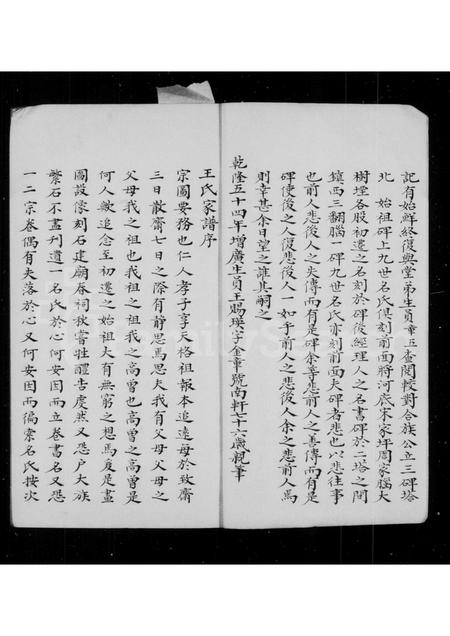 記有始鮮終復與堂弟生員章五查閱較對合族公立三碑塔
北 始祖碑上九世名氏俱刻前面將河底宋家坪周家腦大
樹埊各股初遷之名刻於碑後經理人之名書碑於二塔之間
鎮西三翻腦一碑九世名氏亦刻前面夫碑者悲也以悲往事
也前人悲後人之失傳而有是碑余等悲前人之善傳而有是
碑使後之人復悲後人一如乎前人之悲後人余之悲前人焉
則幸甚余日望之誰其嗣之
乾隆五十四年增廣生員王賜瑛字金章號南軒七十六歲親筆
王氏家譜序
宗圖要務也仁人孝子享天格祖報本追遠每於致齋
三日散齋七日之際有靜思焉思夫我有父母父母之
父母我之祖也我祖之祖我之高曾也高曾之高曾是
何人歟追念至初遷之始祖大有無窮之想焉爰是畫
圖設像刻石建廟春祠秋嘗牲醴告虔然又恐戶大族
繁石不盡刊遺一名氏於心何安因而立卷書名又恐
一二宗卷偶有失落於心又何安因而徧索名氏按次